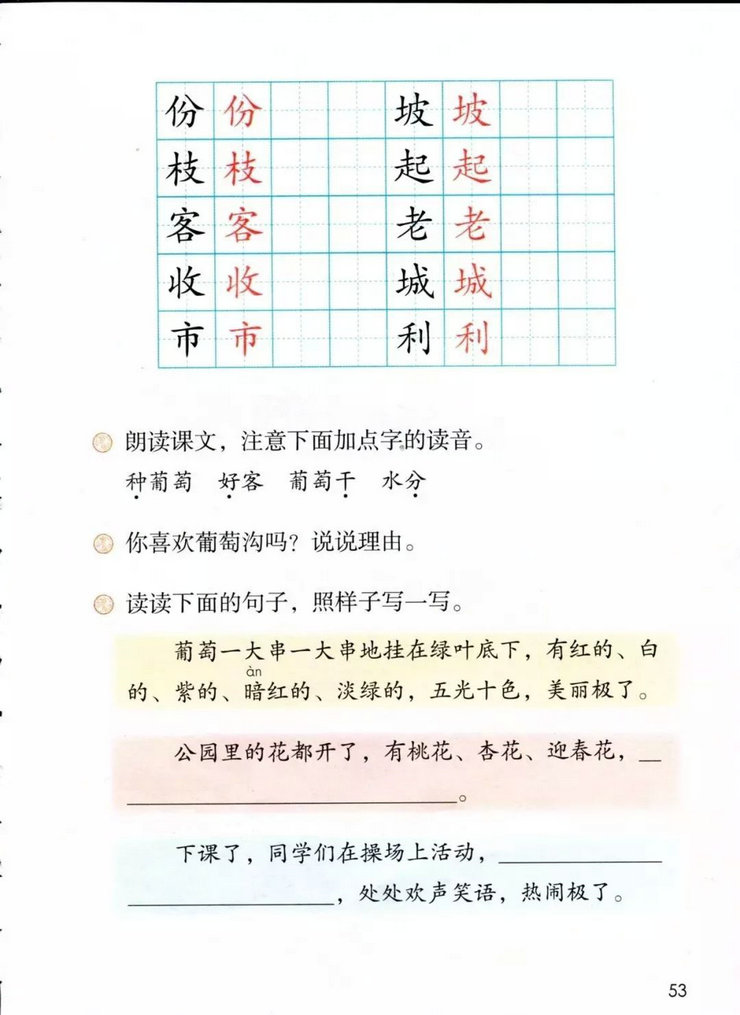 份 份 坡 坡
枝 枝 起 起
客 客 老 老
收 收 城 城
市 市 利 利
朗读课文，注意下面加点字的读音。
种葡萄 好客 葡萄干 水分
你喜欢葡萄沟吗？说说理由。
读读下面的句子，照样子写一写。
葡萄一大串一大串地挂在绿叶底下，有红的、白
àn
的、紫的、暗红的、淡绿的，五光十色，美丽极了。
公园里的花都开了，有桃花、杏花、迎春花，__
______________________________。
下课了，同学们在操场上活动，_______________
___________________，处处欢声笑语，热闹极了。
53